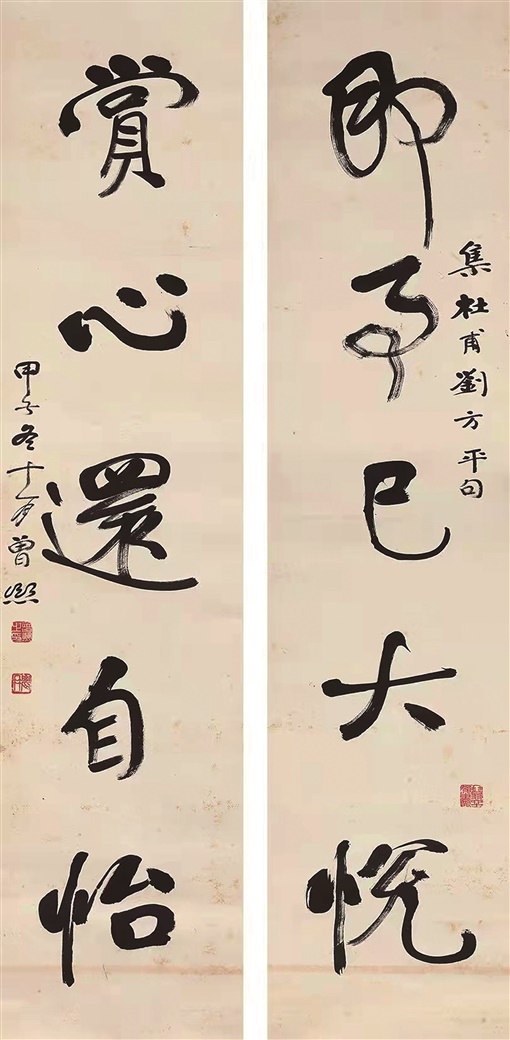 即事已大悦
集杜甫劉方平句
賞心還自怡
甲子冬十月曾熙